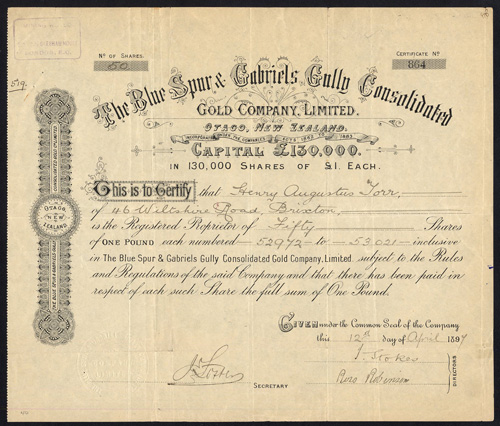 Nº OF SHARES.
50
CERTIFICATE Nº
864
519.
The Blue Spur & Gabriels Gully Consolidated
GOLD COMPANY, LIMITED.
OTAGO, NEW ZEALAND.
INCORPORATED UNDER THE COMPANIES ACTS
CAPITAL £130,000.
IN 130,000 SHARES OF £1. EACH.
This is to Certify that Henry Augustus Torr,
of 46 Wiltshire Road, Brixton,
is the Registered Proprietor of Fifty Shares
of ONE POUND each numbered 52972 to 53021 inclusive
in The Blue Spur & Gabriels Gully Consolidated Gold Company, Limited. subject to the Rules
and Regulations of the said Company and that there has been paid in
respect of each such Share the full sum of One Pound.
OTAGO
NEW
ZEALAND
THE BLUE SPUR & GABRIELS GULLY
CONSOLIDATED GOLD COMPANY LIMITED
GIVEN under the Common Seal of the Company
this 12th day of April 1897
J. Stokes
Robinson
DIRECTORS
SECRETARY